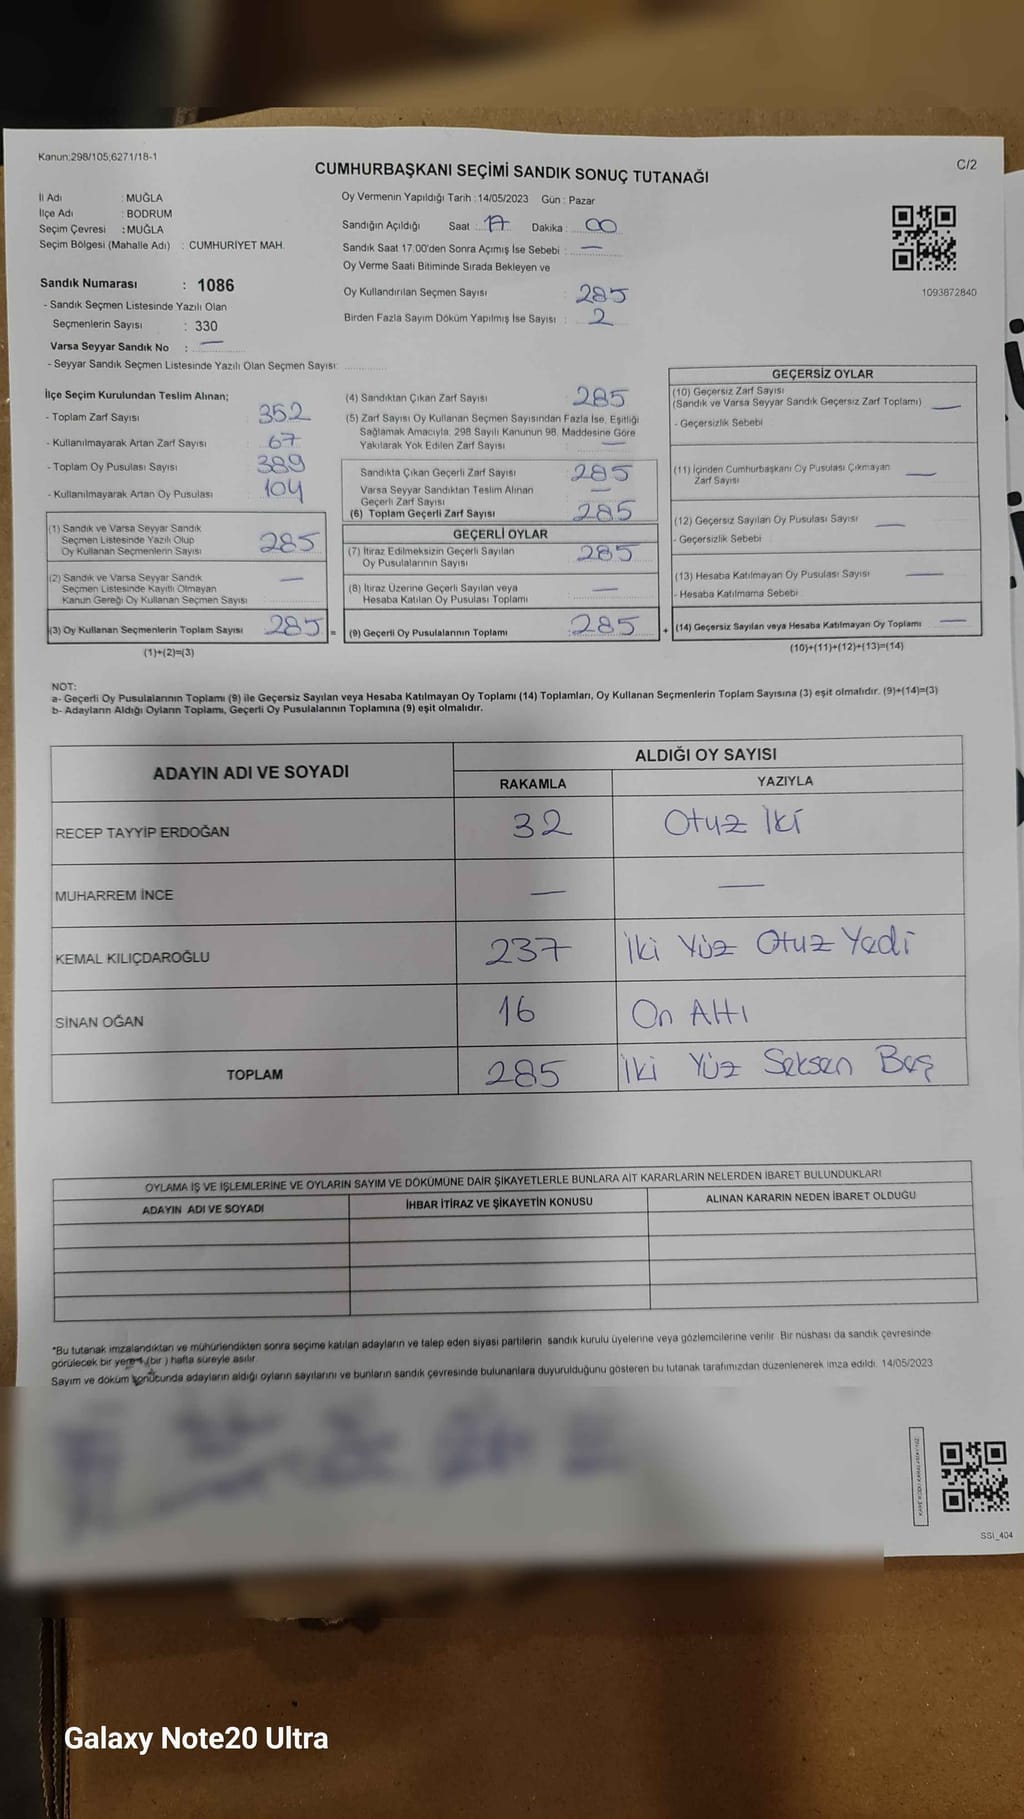 Kanun:298/105,6271/18-1
C/2
CUMHURBAŞKANI SEÇİMİ SANDIK SONUÇ TUTANAĞI
İl Adı : MUĞLA
İlçe Adı : BODRUM
Seçim Çevresi : MUĞLA
Seçim Bölgesi (Mahalle Adı) : CUMHURİYET MAH.
Oy Vermenin Yapıldığı Tarih : 14/05/2023 Gün : Pazar
Sandığın Açıldığı Saat 17 Dakika : 00
Sandık Saat 17.00'den Sonra Açımış İse Sebebi : —
Oy Verme Saati Bitiminde Sırada Bekleyen ve
Oy Kullandırılan Seçmen Sayısı 285
Birden Fazla Sayım Döküm Yapılmış İse Sayısı : 2
1093872840
Sandık Numarası : 1086
- Sandık Seçmen Listesinde Yazılı Olan
Seçmenlerin Sayısı : 330
Varsa Seyyar Sandık No : —
- Seyyar Sandık Seçmen Listesinde Yazılı Olan Seçmen Sayısı:
İlçe Seçim Kurulundan Teslim Alınan;
- Toplam Zarf Sayısı 352
- Kullanılmayarak Artan Zarf Sayısı : 67
- Toplam Oy Pusulası Sayısı 389
- Kullanılmayarak Artan Oy Pusulası 104
(1) Sandık ve Varsa Seyyar Sandık
Seçmen Listesinde Yazılı Olup
Oy Kullanan Seçmenlerin Sayısı 285
(2) Sandık ve Varsa Seyyar Sandık
Seçmen Listesinde Kayıtlı Olmayan
Kanun Gereği Oy Kullanan Seçmen Sayısı —
(3) Oy Kullanan Seçmenlerin Toplam Sayısı 285 =
(1)+(2)=(3)
(4) Sandıktan Çıkan Zarf Sayısı 285
(5) Zarf Sayısı Oy Kullanan Seçmen Sayısından Fazla İse, Eşitliği
Sağlamak Amacıyla, 298 Sayılı Kanunun 98. Maddesine Göre
Yakılarak Yok Edilen Zarf Sayısı : —
Sandıkta Çıkan Geçerli Zarf Sayısı 285
Varsa Seyyar Sandıktan Teslim Alınan
Geçerli Zarf Sayısı —
(6) Toplam Geçerli Zarf Sayısı 285
GEÇERLİ OYLAR
(7) İtiraz Edilmeksizin Geçerli Sayılan
Oy Pusulalarının Sayısı 285
(8) İtiraz Üzerine Geçerli Sayılan veya
Hesaba Katılan Oy Pusulası Toplamı —
(9) Geçerli Oy Pusulalarının Toplamı : 285 +
GEÇERSİZ OYLAR
(10) Geçersiz Zarf Sayısı
(Sandık ve Varsa Seyyar Sandık Geçersiz Zarf Toplamı) —
- Geçersizlik Sebebi
(11) İçinden Cumhurbaşkanı Oy Pusulası Çıkmayan
Zarf Sayısı —
(12) Geçersiz Sayılan Oy Pusulası Sayısı —
- Geçersizlik Sebebi
(13) Hesaba Katılmayan Oy Pusulası Sayısı —
- Hesaba Katılmama Sebebi
(14) Geçersiz Sayılan veya Hesaba Katılmayan Oy Toplamı —
(10)+(11)+(12)+(13)=(14)
NOT:
a- Geçerli Oy Pusulalarının Toplamı (9) ile Geçersiz Sayılan veya Hesaba Katılmayan Oy Toplamı (14) Toplamları, Oy Kullanan Seçmenlerin Toplam Sayısına (3) eşit olmalıdır. (9)+(14)=(3)
b- Adayların Aldığı Oyların Toplamı, Geçerli Oy Pusulalarının Toplamına (9) eşit olmalıdır.
ADAYIN ADI VE SOYADI ALDIĞI OY SAYISI
RAKAMLA YAZIYLA
RECEP TAYYİP ERDOĞAN 32 Otuz İki
MUHARREM İNCE — —
KEMAL KILIÇDAROĞLU 237 İki Yüz Otuz Yedi
SİNAN OĞAN 16 On Altı
TOPLAM 285 İki Yüz Seksen Beş
OYLAMA İŞ VE İŞLEMLERİNE VE OYLARIN SAYIM VE DÖKÜMÜNE DAİR ŞİKAYETLERLE BUNLARA AİT KARARLARIN NELERDEN İBARET BULUNDUKLARI
ADAYIN ADI VE SOYADI İHBAR İTİRAZ VE ŞİKAYETİN KONUSU ALINAN KARARIN NEDEN İBARET OLDUĞU
*Bu tutanak imzalandıktan ve mühürlendikten sonra seçime katılan adayların ve talep eden siyasi partilerin sandık kurulu üyelerine veya gözlemcilerine verilir. Bir nüshası da sandık çevresinde
görülecek bir yere 1 (bir ) hafta süreyle asılır.
Sayım ve döküm sonucunda adayların aldığı oyların sayılarını ve bunların sandık çevresinde bulunanlara duyurulduğunu gösteren bu tutanak tarafımızdan düzenlenerek imza edildi. 14/05/2023
SSİ_404
Galaxy Note20 Ultra